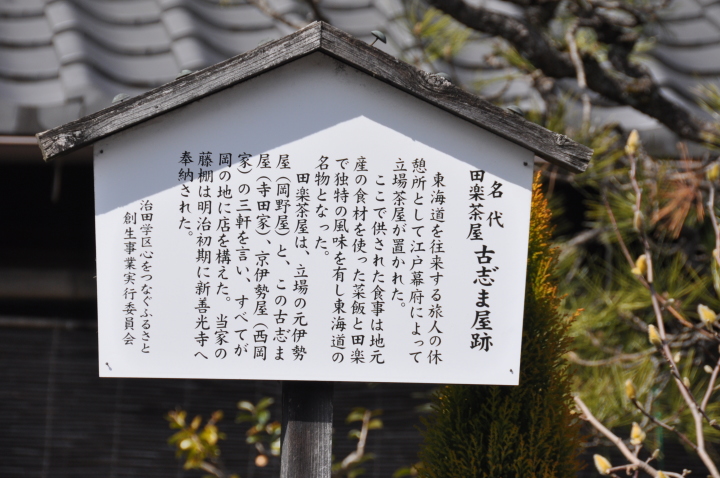 名代
田楽茶屋 古志゛ま屋跡
東海道を往来する旅人の休
憩所として江戸幕府によって
立場茶屋が置かれた。
ここで供された食事は地元
産の食材を使った菜飯と田楽
で独特の風味を有し東海道の
名物となった。
田楽茶屋は、立場の元伊勢
屋（岡野屋）と、この古志゛ま
屋（寺田家）、京伊勢屋（西岡
家）の三軒を言い、すべてが
岡の地に店を構えた。当家の
藤棚は明治初期に新善光寺へ
奉納された。
治田学区心をつなぐふるさと
創生事業実行委員会